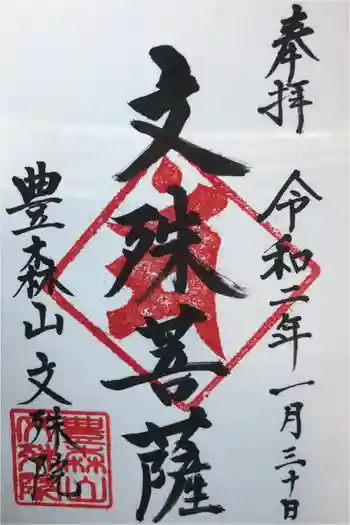 奉拝
令和二年一月三十日
文殊菩薩
豊森山文殊院